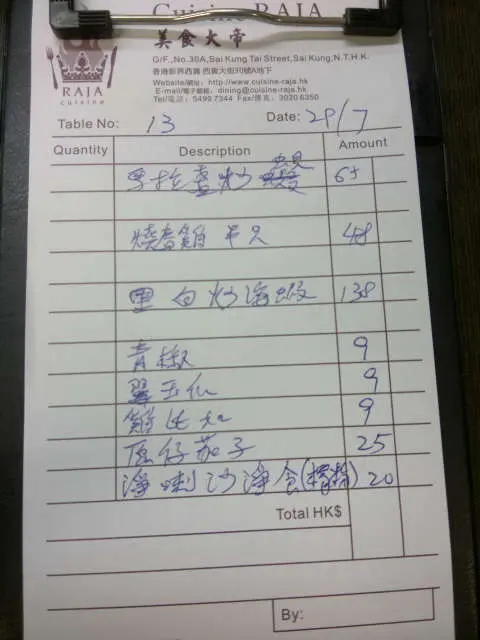 Cuisine RAJA
美食大帝
RAJA
cuisine
G/F.,No.30A,Sai Kung Tai Street,Sai Kung,N.T.H.K.
香港新界西貢 西貢大街30號A地下
Website/網址: http://www.cuisine-raja.hk
E-mail/電子郵箱: dining@cuisine-raja.hk
Tel/電話: 5499 7344 Fax/傳真: 3020 6350
Table No: 13 Date: 29/7
Quantity Description Amount
炒 65
燒春雞 半只 48
炒海蝦 138
青椒 9
玉 9
雞 9
茄子 25
淨喇沙淨食( ) 20
Total HK$
By: